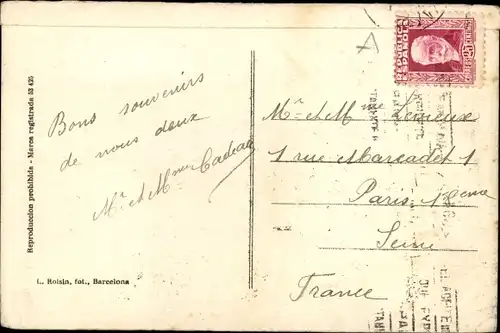 Reproduccion prohibida - Marca registrada 53 425
Bons souvenirs
de nous deux
Mr et Mme Cadeau
L. Roisin, fot., Barcelona
REPUBLICA
ESPAÑOLA
25 CTMS
CORREOS
Mr et Mme Lemeux
1 rue Marcadet 1
Paris 18eme
Seine
France